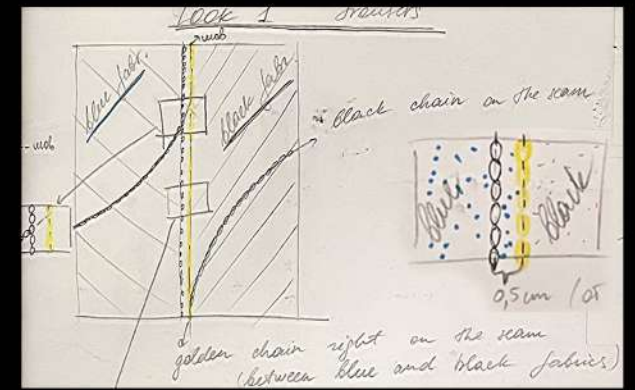 Look 1 trousers
blue fabr.
black fabr.
black chain on the seam
blue
black
0,5 cm / от
golden chain right on the seam
(between blue and black fabrics)